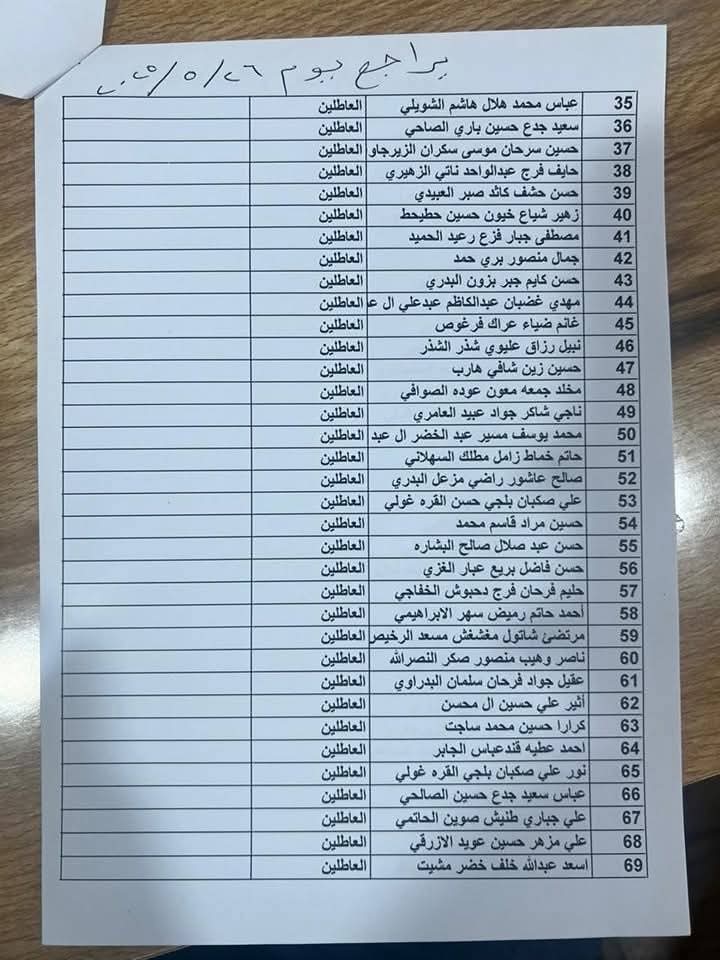 يراجع يوم ٢٦/٥/٢٠٢٥
35 عباس محمد هلال هاشم الشويلي العاطلين
36 سعيد جدع حسين باري الصاحي العاطلين
37 حسين سرحان موسى سكران الزيرجاو العاطلين
38 حايف فرج عبدالواحد ناتي الزهيري العاطلين
39 حسن حشف كائد صبر العبيدي العاطلين
40 زهير شياع خيون حسين حطيحط العاطلين
41 مصطفى جبار فزع رعيد الحميد العاطلين
42 جمال منصور بري حمد العاطلين
43 حسن كايم جبر بزون البدري العاطلين
44 مهدي غضبان عبدالكاظم عبدعلي ال عد العاطلين
45 غانم ضياء عراك فرغوص العاطلين
46 نبيل رزاق عليوي شذر الشذر العاطلين
47 حسين زين شافي هارب العاطلين
48 مخلد جمعه معون عوده الصوافي العاطلين
49 ناجي شاكر جواد عبيد العامري العاطلين
50 محمد يوسف مسير عبد الخضر ال عبد العاطلين
51 حاتم خماط زامل مطلك السهلاني العاطلين
52 صالح عاشور راضي مزعل البدري العاطلين
53 علي صكبان بلجي حسن القره غولي العاطلين
54 حسين مراد قاسم محمد العاطلين
55 حسن عبد صلال صالح البشاره العاطلين
56 حسن فاضل بريع عبار الغزي العاطلين
57 حليم فرحان فرج دحبوش الخفاجي العاطلين
58 أحمد حاتم رميض سهر الابراهيمي العاطلين
59 مرتضئ شاتول مغشغش مسعد الرخيص العاطلين
60 ناصر وهيب منصور صكر النصرالله العاطلين
61 عقيل جواد فرحان سلمان البدراوي العاطلين
62 أثير علي حسين ال محسن العاطلين
63 كرارا حسين محمد ساجت العاطلين
64 احمد عطيه قندعباس الجابر العاطلين
65 نور علي صكبان بلجي القره غولي العاطلين
66 عباس سعيد جدع حسين الصالحي العاطلين
67 علي جباري طنيش صوين الحاتمي العاطلين
68 علي مزهر حسين عويد الازرقي العاطلين
69 اسعد عبدالله خلف خضر مشيت العاطلين